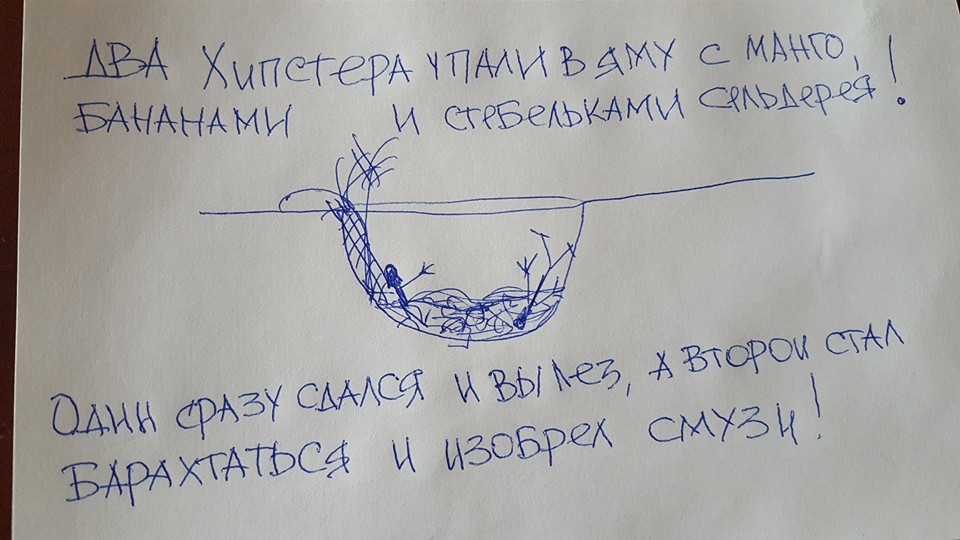 ДВА ХИПСТЕРА УПАЛИ В ЯМУ С МАНГО,
БАНАНАМИ И СТЕБЕЛЬКАМИ СЕЛЬДЕРЕЯ!
ОДИН СРАЗУ СДАЛСЯ И ВЫЛЕЗ, А ВТОРОЙ СТАЛ
БАРАХТАТЬСЯ И ИЗОБРЕЛ СМУЗИ!